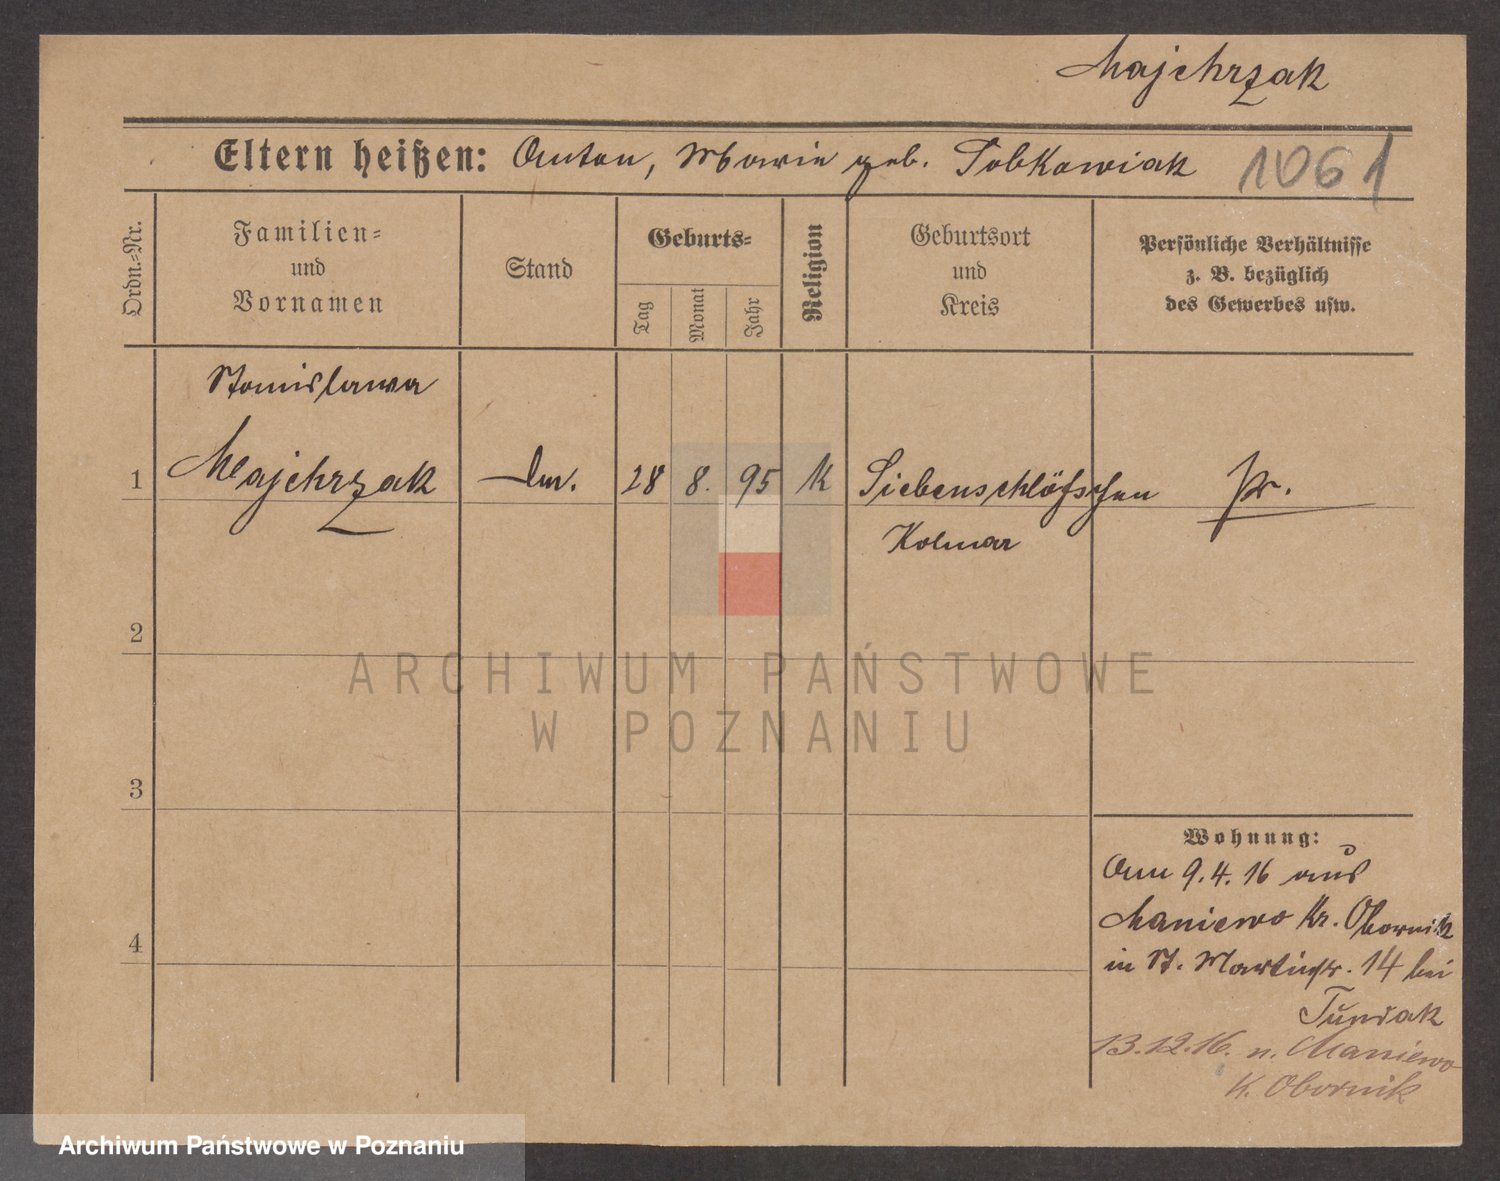 Majchrzak
Eltern heißen: Anton, Marie geb. Sobkowiak 1061
Ordn.=Nr.
Familien=
und
Vornamen
Stand
Geburts=
Tag
Monat
Jahr
Religion
Geburtsort
und
Kreis
Persönliche Verhältnisse
z. B. bezüglich
des Gewerbes usw.
Stanislawa
1 Majchrzak 28 8. 95 K Siebenschlößchen Pr.
Kolmar
2
3
4
Wohnung:
Am 9.4.16 aus
Maniewo Kr. Obornik
in St. Martinstr. 14 bei
13.12.16. n. Maniewo
K. Obornik
ARCHIWUM PAŃSTWOWE
W POZNANIU
Archiwum Państwowe w Poznaniu